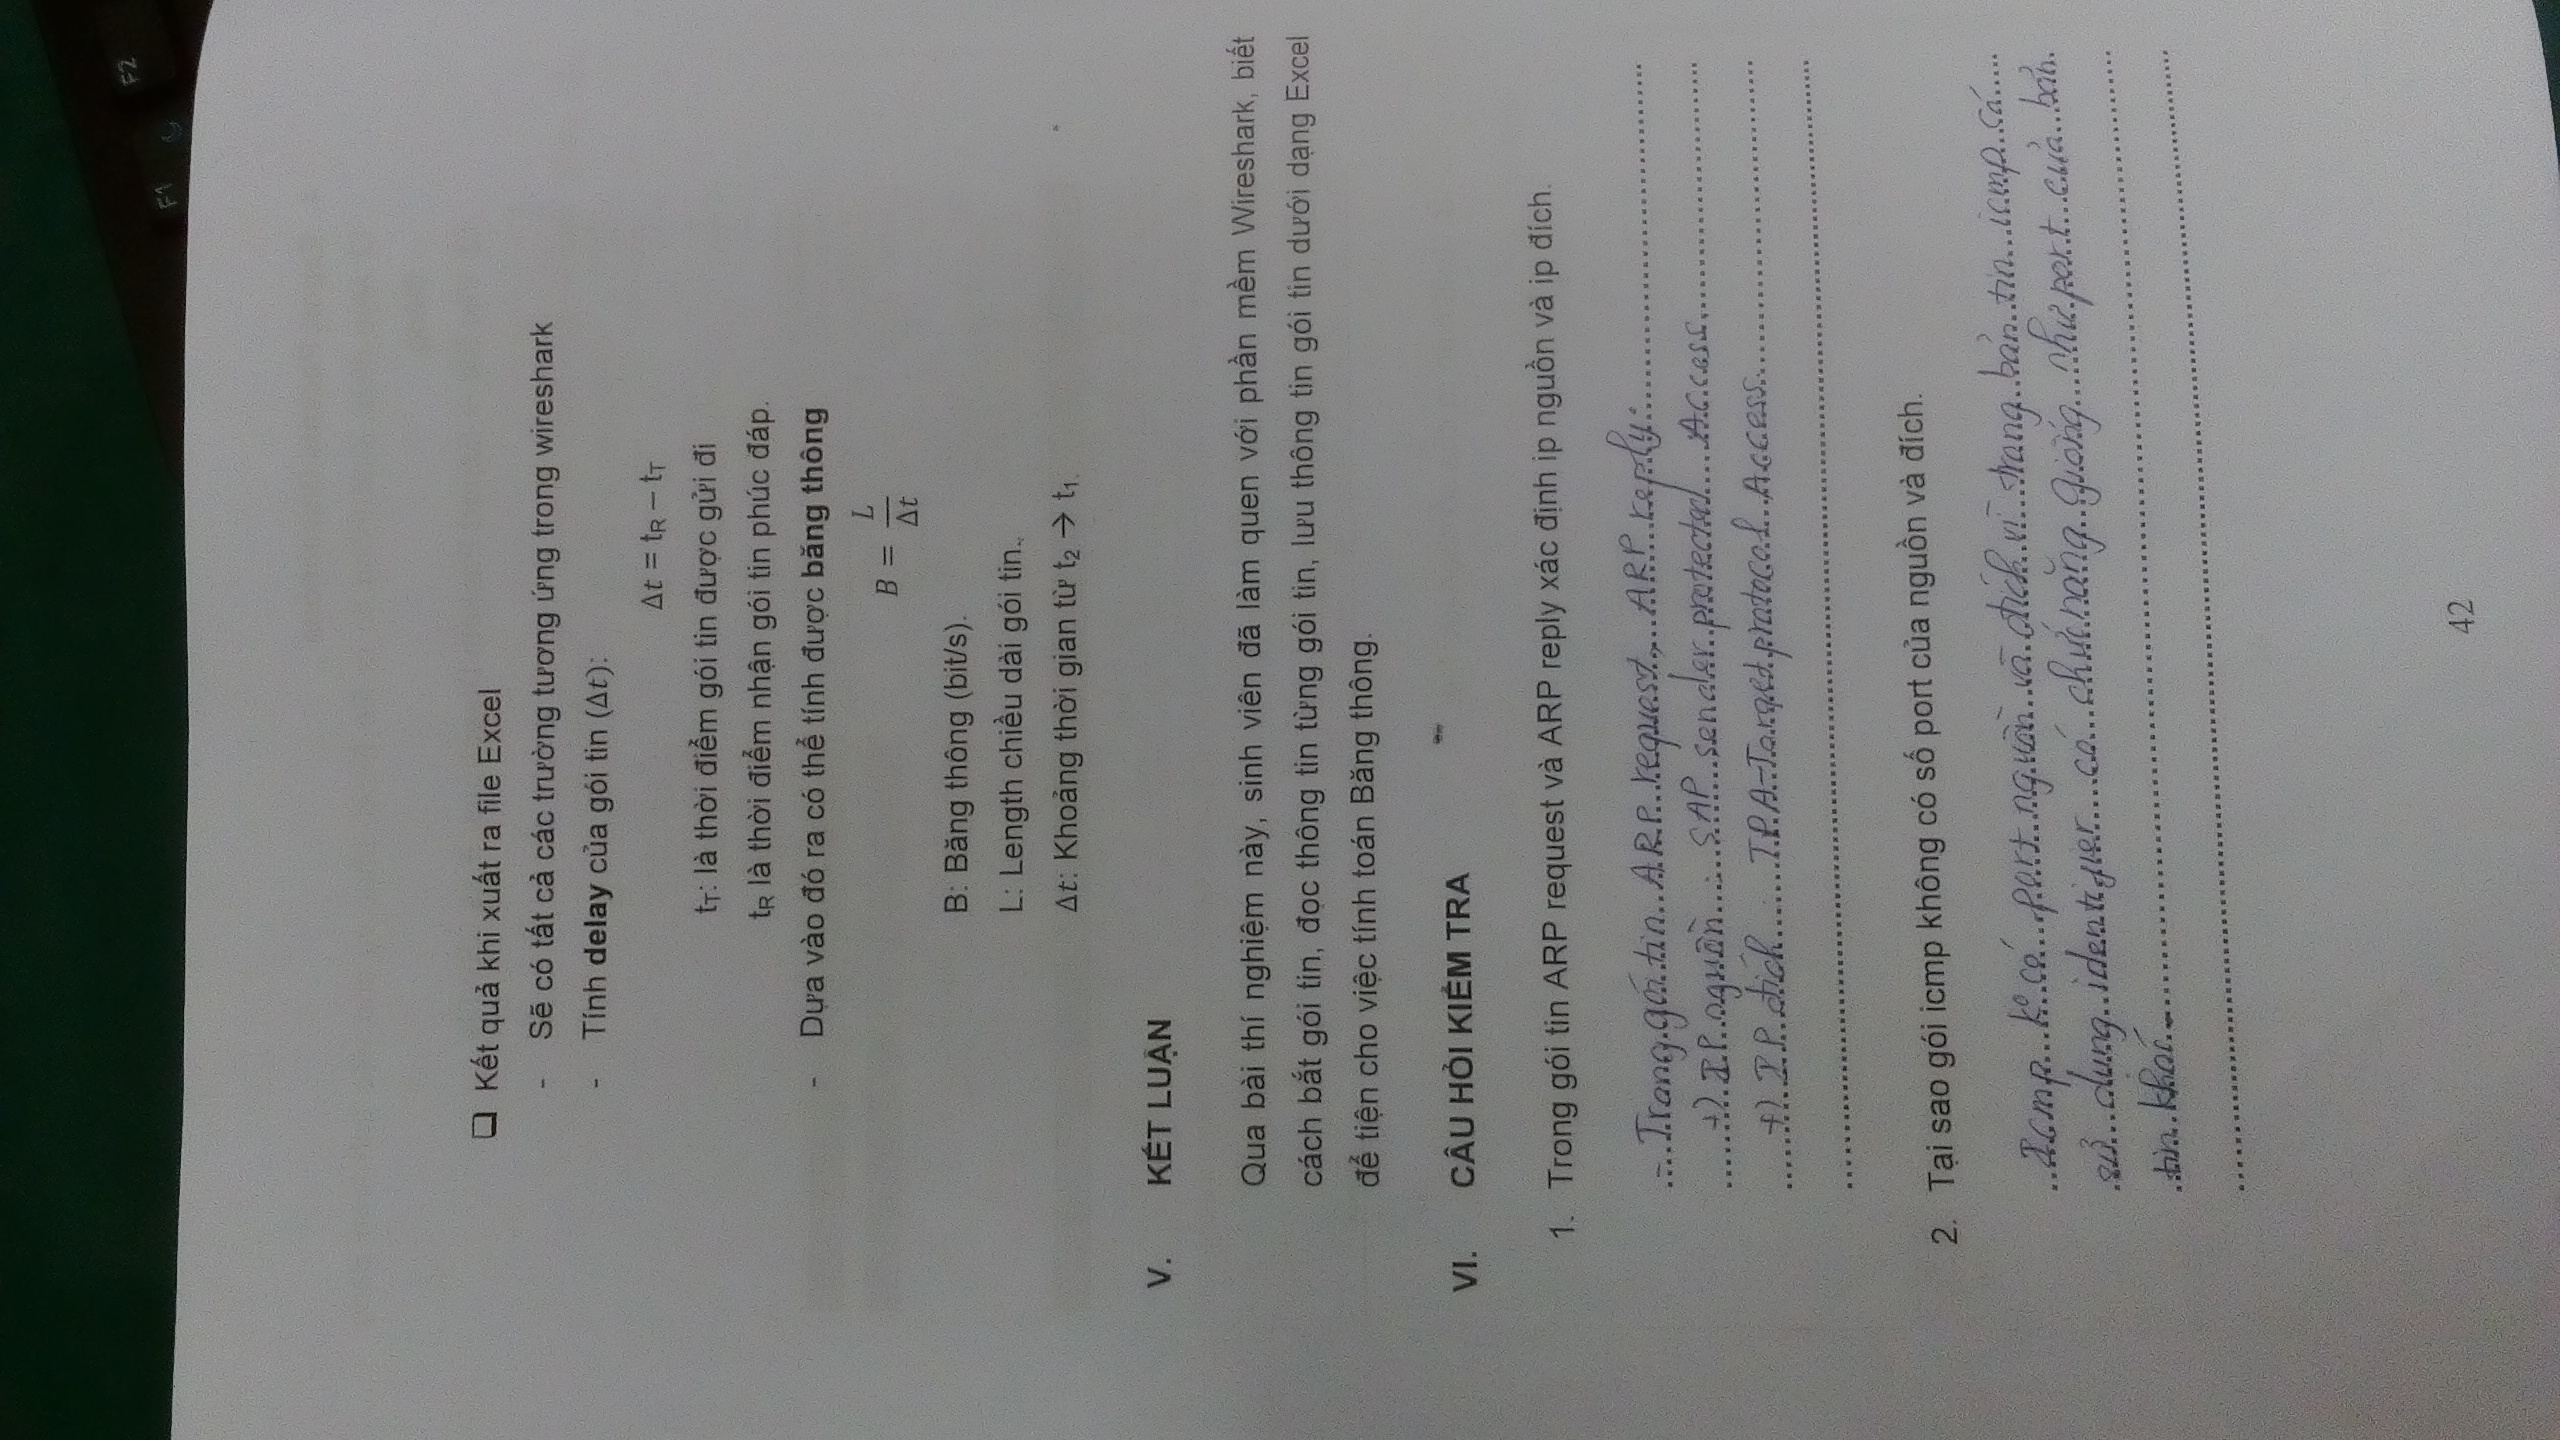 F1
F2
❑ Kết quả khi xuất ra file Excel
- Sẽ có tất cả các trường tương ứng trong wireshark
- Tính delay của gói tin (Δt):
Δt = tR – tT
tT: là thời điểm gói tin được gửi đi
tR là thời điểm nhận gói tin phúc đáp.
- Dựa vào đó ra có thể tính được băng thông
B = L / Δt
B: Băng thông (bit/s).
L: Length chiều dài gói tin.
Δt: Khoảng thời gian từ t2 → t1.
V. KẾT LUẬN
Qua bài thí nghiệm này, sinh viên đã làm quen với phần mềm Wireshark, biết
cách bắt gói tin, đọc thông tin từng gói tin, lưu thông tin gói tin dưới dạng Excel
để tiện cho việc tính toán Băng thông.
VI. CÂU HỎI KIỂM TRA
1. Trong gói tin ARP request và ARP reply xác định ip nguồn và ip đích.
- Trong gói tin ARP request, ARP reply:
+) IP nguồn : SAP sender protected Access.
+) IP đích : TPA-Target protocal Access.
2. Tại sao gói icmp không có số port của nguồn và đích.
Icmp k° có port nguồn và đích vì trong bản tin icmp có
sử dụng identifier có chức năng giống như port của bản
tin khác.
42